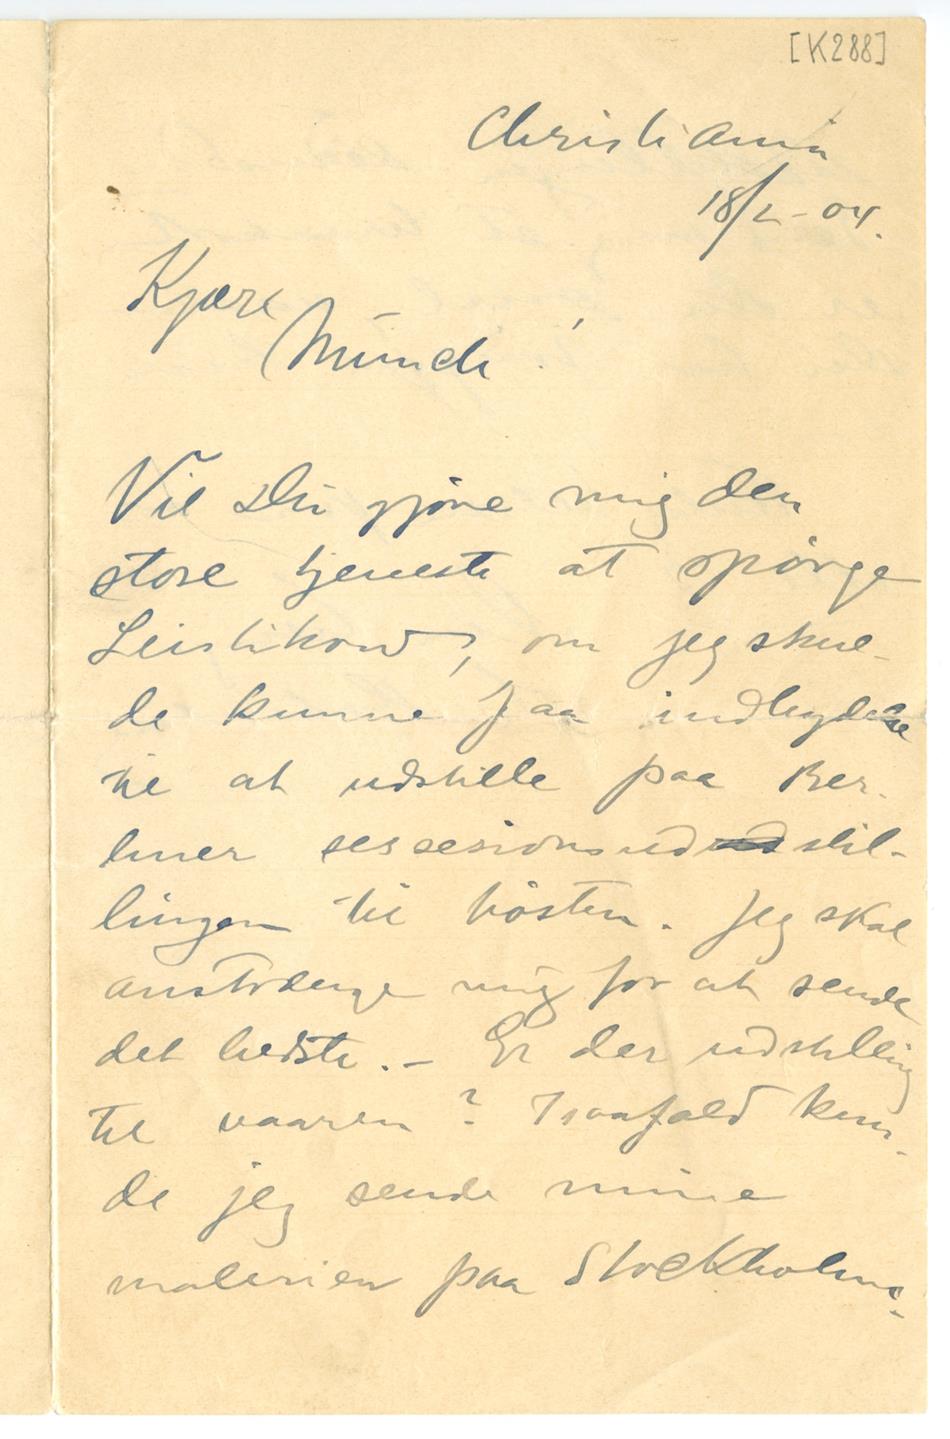 [K288]
Christiania
18/2-04.
Kjære
Munch!
Vil Du gjøre mig den
store tjeneste at spørge
Leistikow, om jeg skul-
de kunne faa indbydelse
til at udstille paa Ber-
liner sessesionsudstil-
lingen til høsten. Jeg skal
anstrænge mig for at sende
det bedste. – Er der udstilling
til vaaren? Isaafald kun-
de jeg sende mine
malerier paa Stockholms-